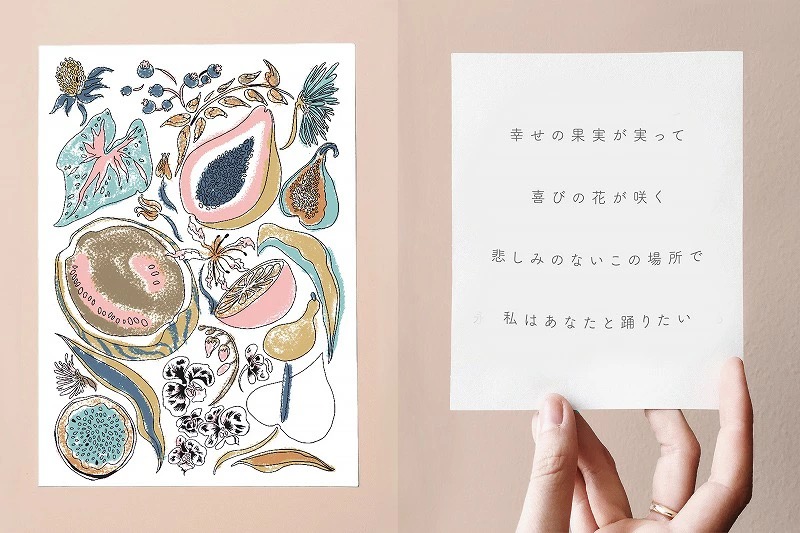 幸せの果実が実って
喜びの花が咲く
悲しみのないこの場所で
私はあなたと踊りたい